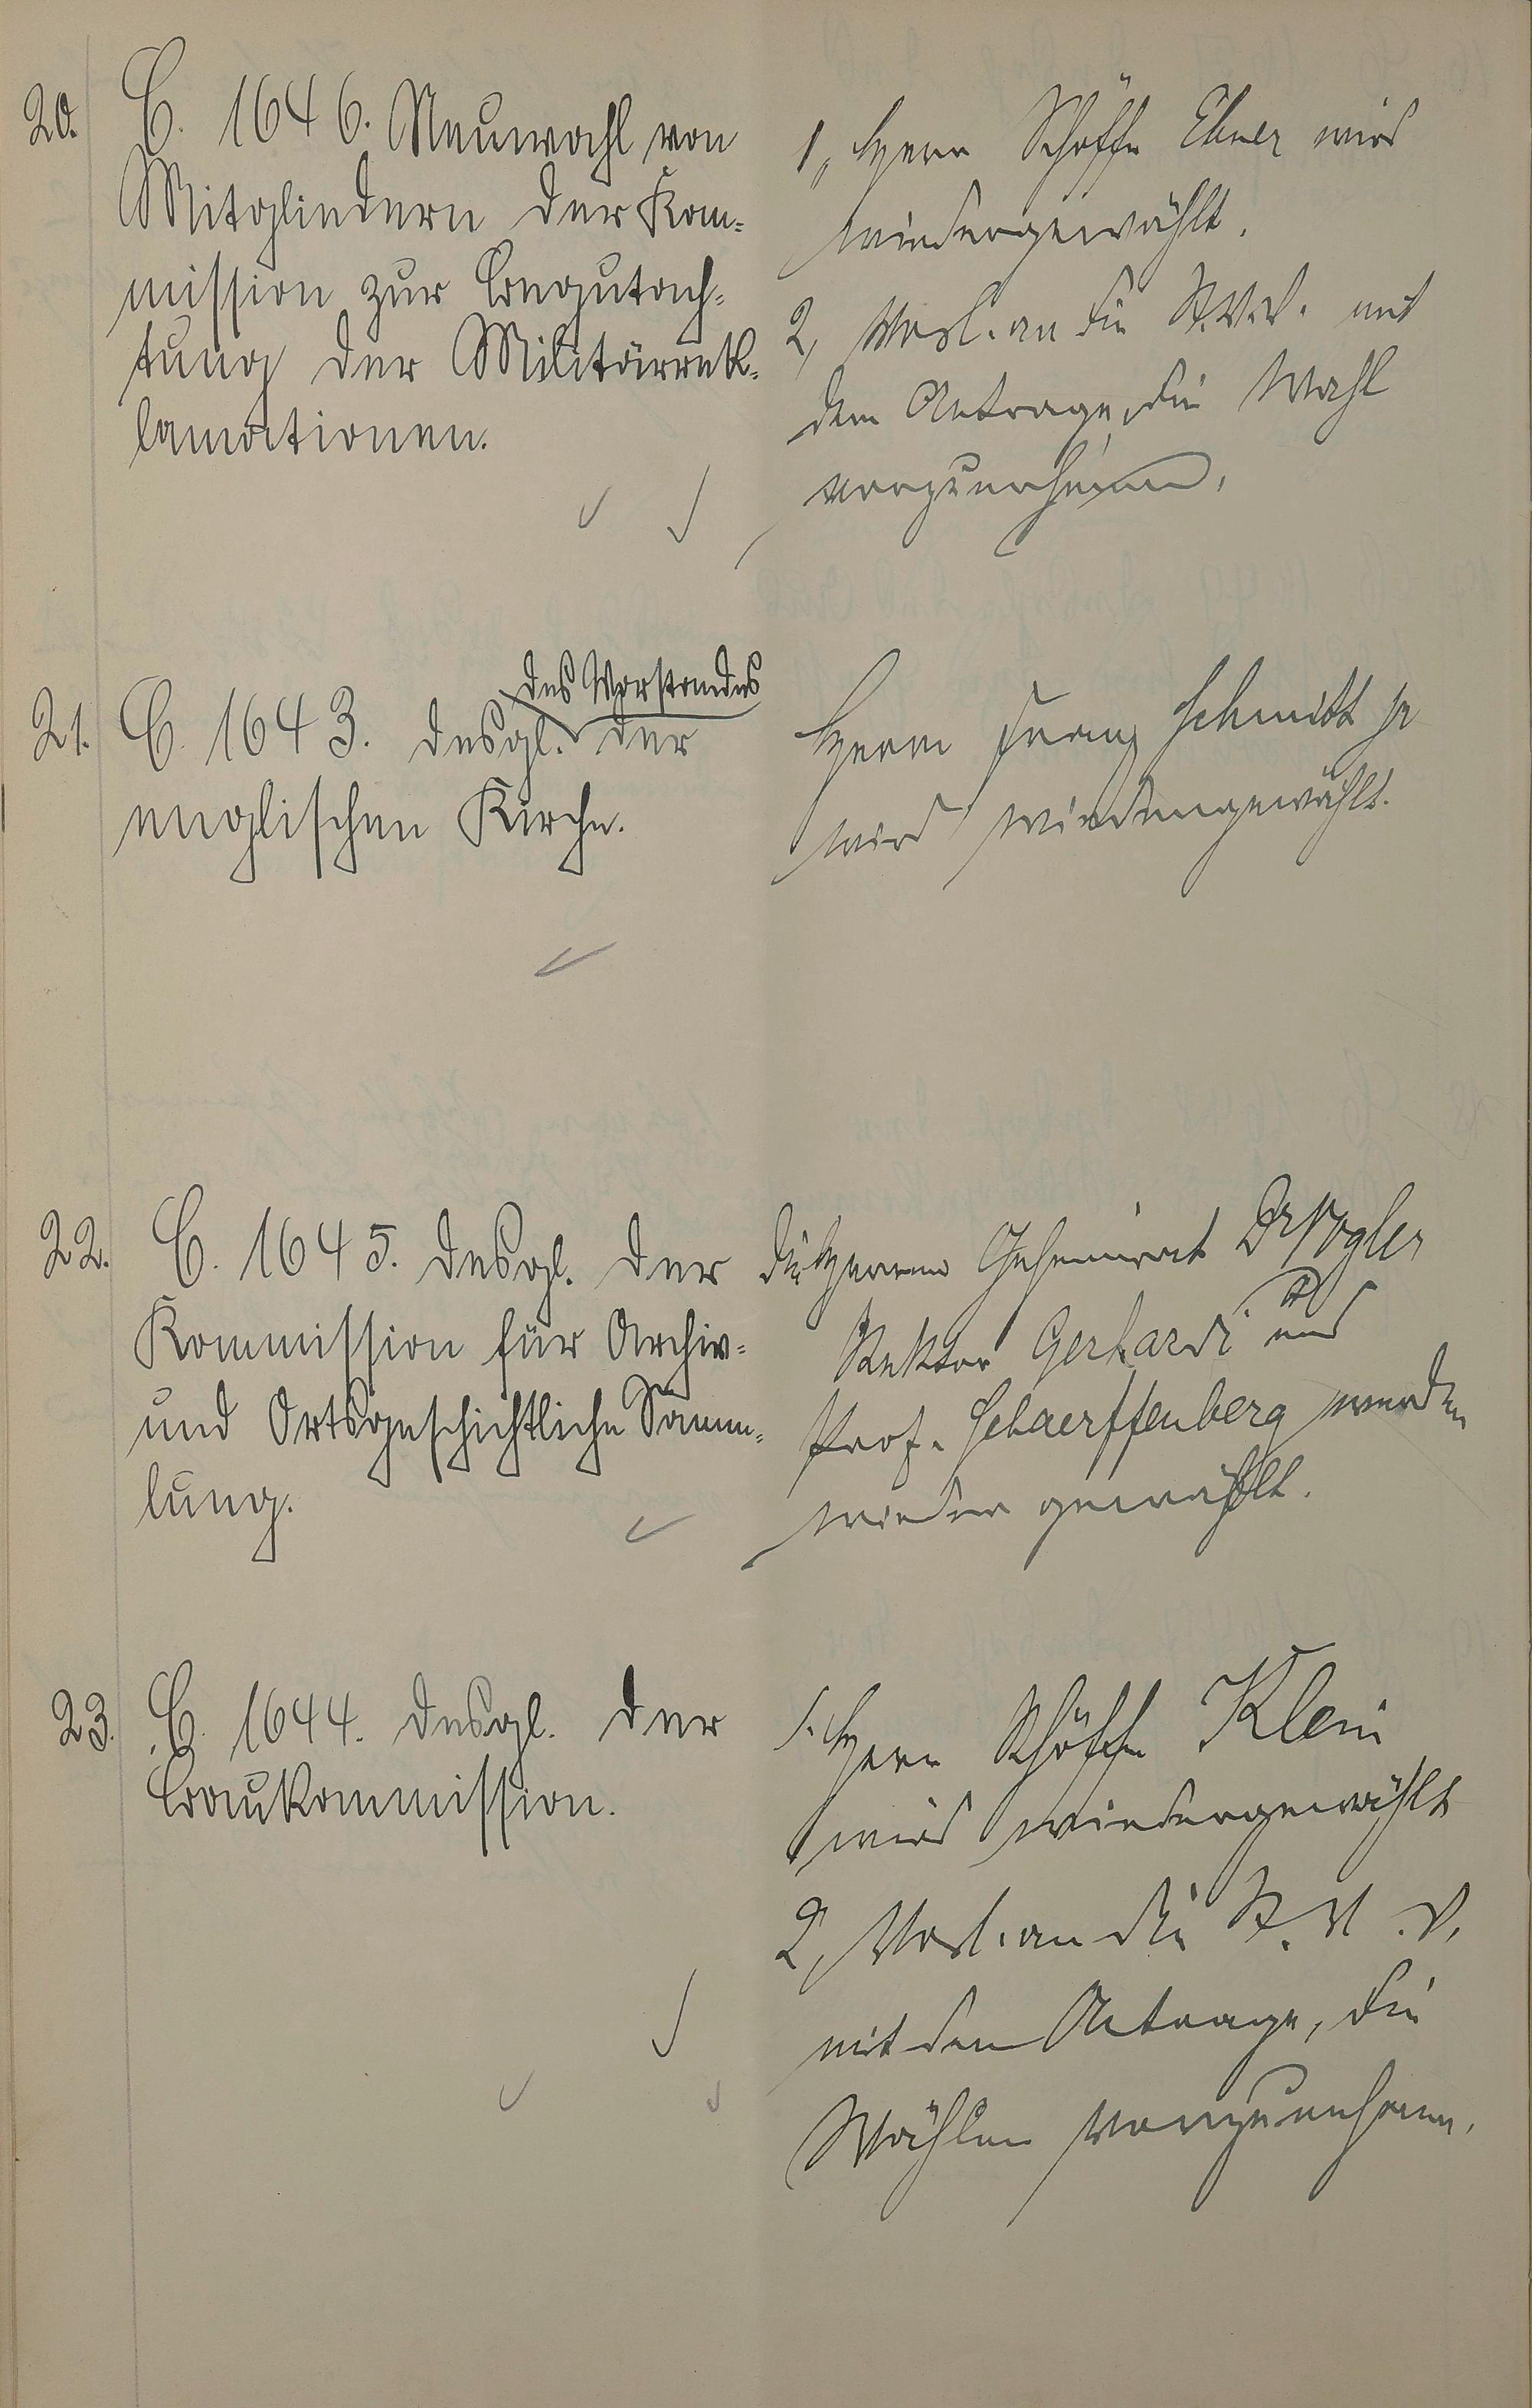 20.
C. 1646. Neuwahl von
Mitgliedern der Kom-
mission zur Begutach-
tung der Militärrek-
lamationen.
1, Herr Schöffe Ebner wird
wiedergewählt.
2, Vorl. an die St.V.V. mit
dem Antrage, die Wahl
vorzunehmen.
21.
des Vorstandes
C. 1643. desgl. der
englischen Kirche.
Herrn Franz Schmitt jr
wird wiedergewählt.
22.
C. 1645. desgl. der
Kommission für Archiv-
und Ortsgeschichtliche Samm-
lung.
die Herren Geheimrat Dr Vogler
Rektor Gerhardi und
Prof. Schaerffenberg werden
wieder gewählt.
23.
C. 1644. desgl. der
Baukommission.
1. Herr Schöffe Klein
wird wiedergewählt
2, Vorl. an die St. V. V.
mit dem Antrage, die
Wahlen vorzunehmen.